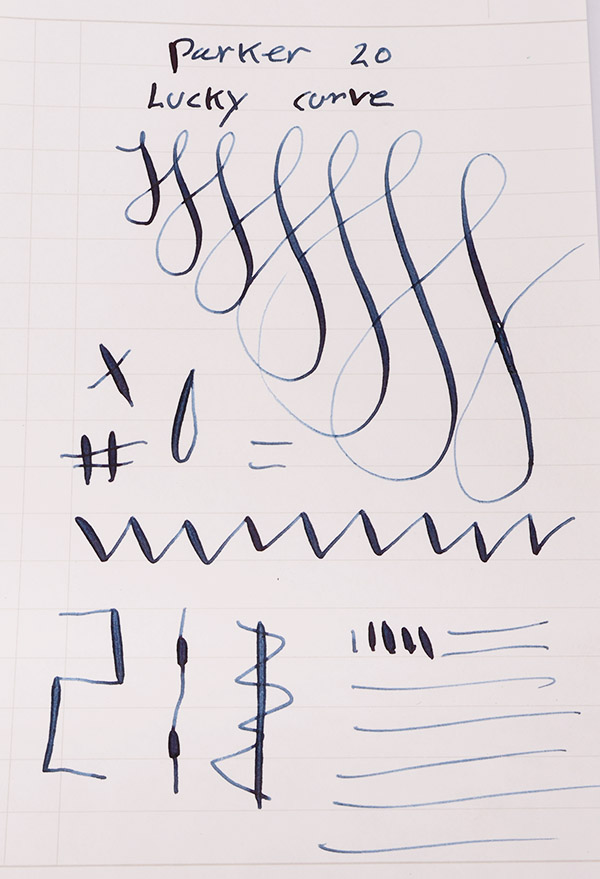 Parker 20
Lucky curve